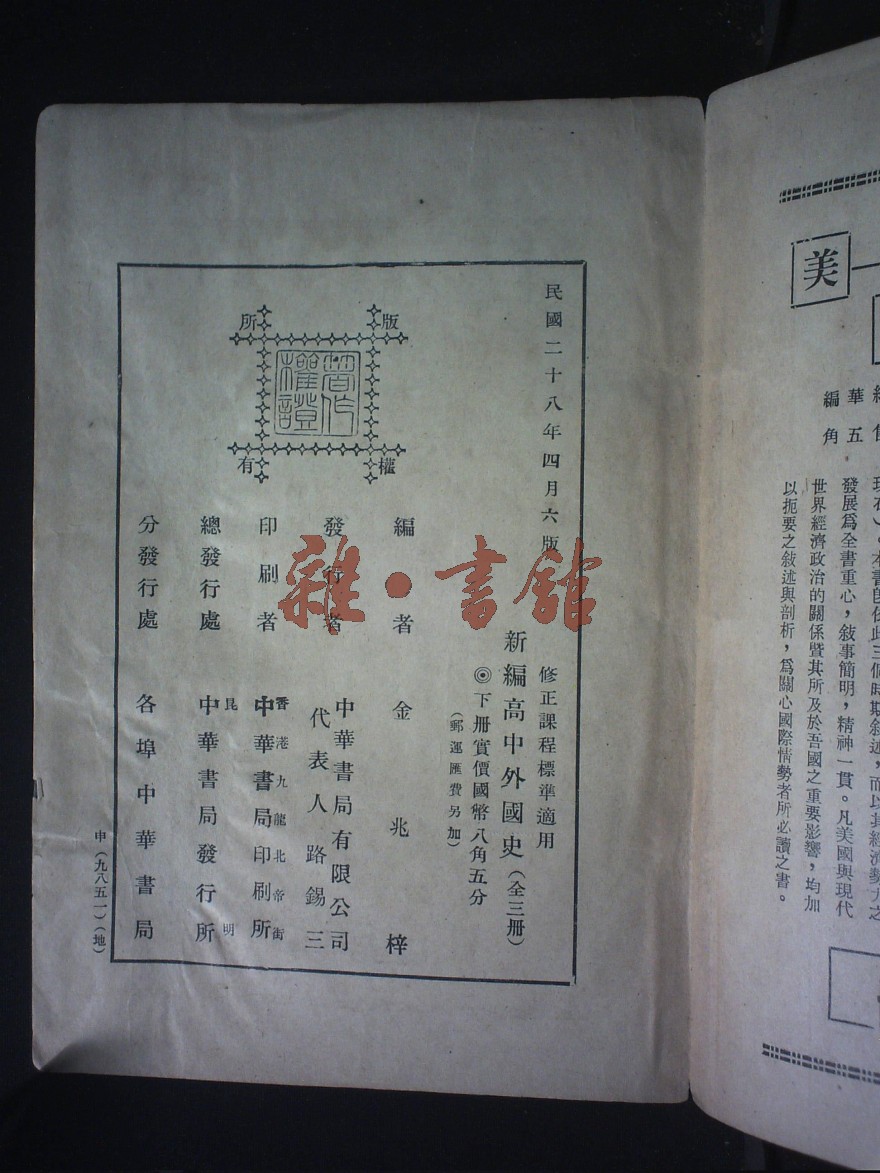 美
編 角
華 五
發展爲全書重心，敘事簡明，精神一貫。凡美國與現代
世界經濟政治的關係暨其所及於吾國之重要影響，均加
以扼要之敘述與剖析，爲關心國際情勢者所必讀之書。
民國二十八年四月六版
修正課程標準適用
新編高中外國史（全三冊）
◎下冊實價國幣八角五分
（郵運匯費另加）
版權所有
著作權證
編者 金兆梓
發行者 中華書局有限公司
代表人 路錫三
印刷者 香港九龍北帝街
中華書局印刷所
總發行處 昆明
中華書局發行所
分發行處 各埠中華書局
申（九八五一）（地）
雜·書館